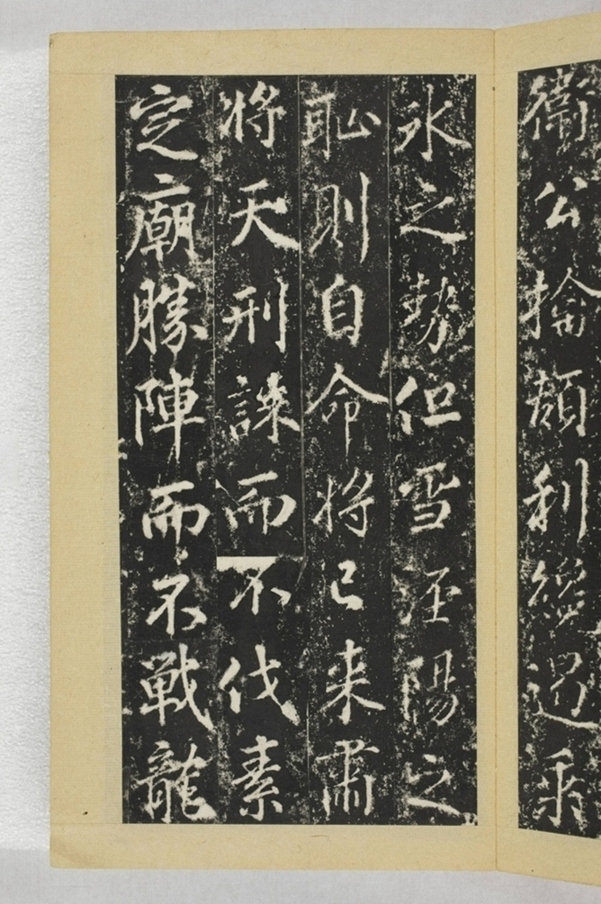 衛公擒頡利纔遇乘
氷之勢但雪涇陽之
恥則自命將已来肅
將天刑誅而不伐素
定廟勝陣而不戰龍